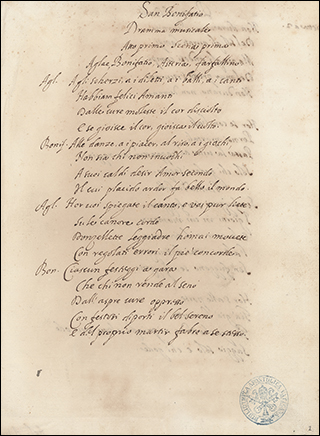 San Bonifatio
Dramma musicale
Atto primo Scena prima
Aglae, Bonifatio, Farfallino
Agl. Agli scherzi, a i diletti, a i balli, a i canti
Habbiam felici Amanti
Dalle cure moleste il cor disciolto
E se gioisce il cor, gioisca il volto.
Bonif. Alle danze, a i piacer, al riso, a i giochi
Non sia chi non invochi
A suoi caldi desir Amor secondo
Il cui placido ardor fa bello il mondo
Agl. Hor voi spiegate il canto, e voi pur liete
Su le canore corde
Donzellette leggiadre homai movete
Con regolati errori il piè concorde
Bon. Ciascun festeggi a gara
Che chi non rende al seno
Dall'aspre cure oppresso
Con festosi diporti il bel sereno
È del proprio martir fabro a se stesso.